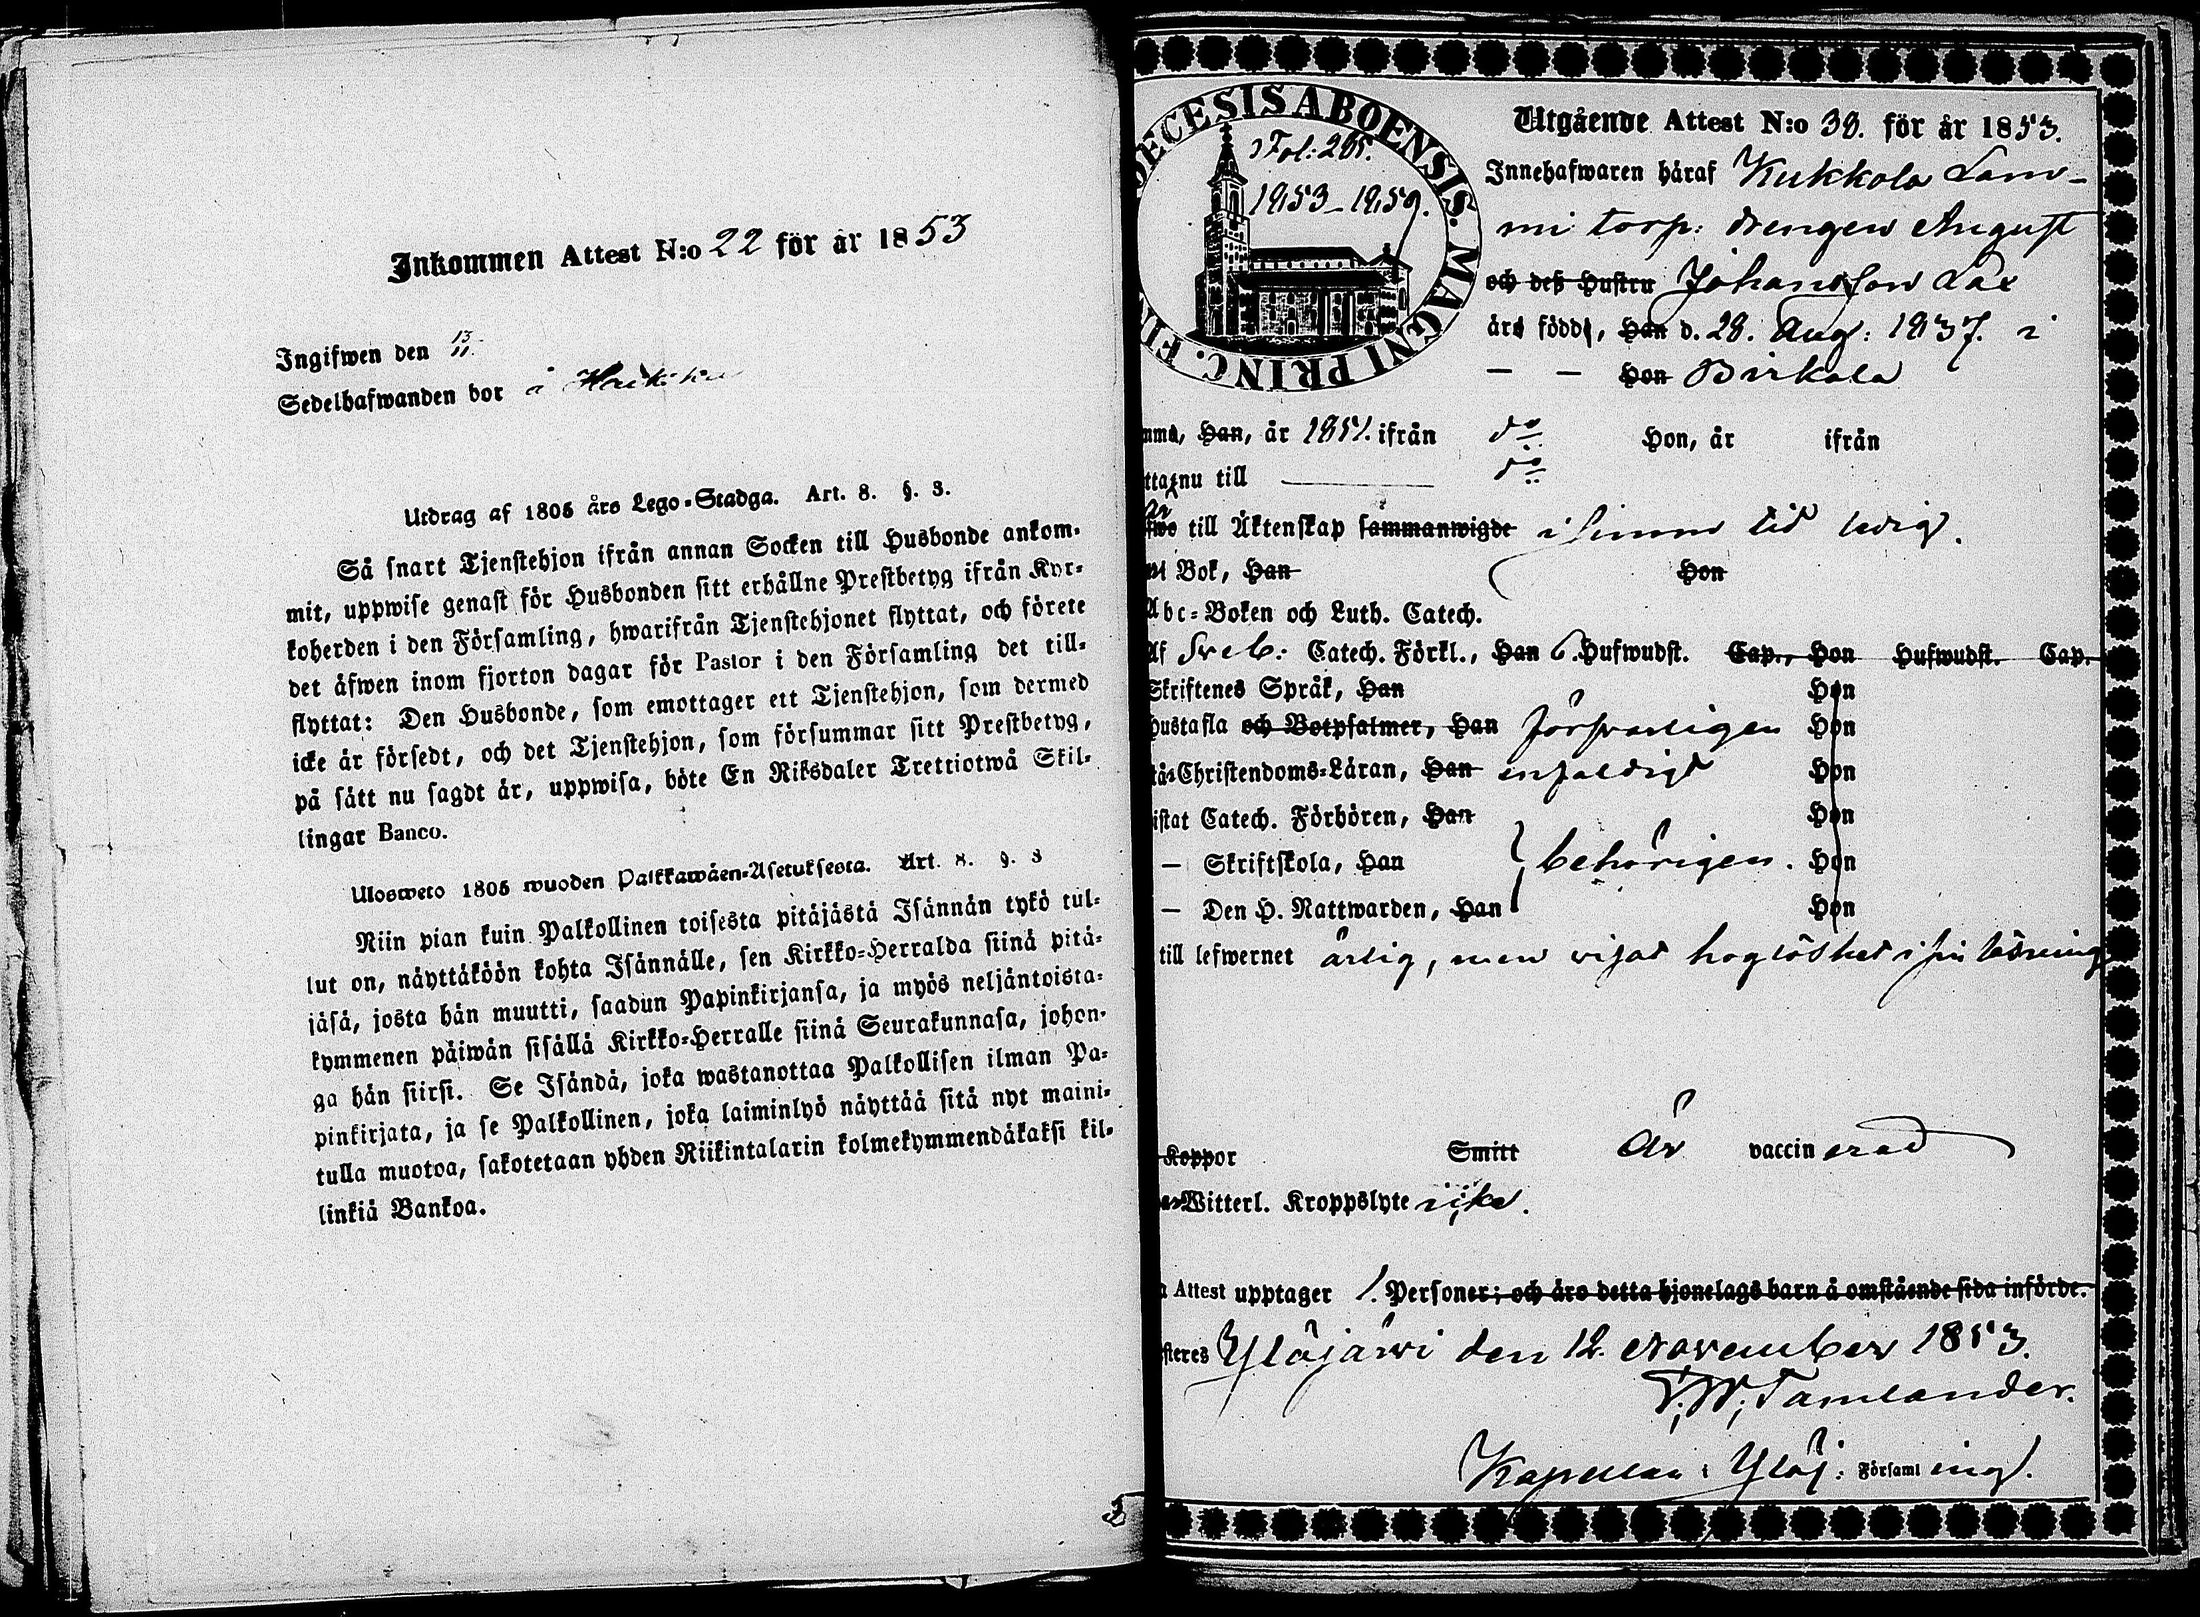 Inkommen Attest N:o 22 för år 1853
Ingifwen den 13/11
Sedelhafwanden bor å
Utdrag af 1805 års Lego-Stadga. Art. 8. §. 3.
Så snart Tjenstehjon ifrån annan Socken till Husbonde ankom-
mit, uppwise genast för Husbonden sitt erhållne Prestbetyg ifrån Kyr-
koherden i den Församling, hwarifrån Tjenstehjonet flyttat, och förete
det äfwen inom fjorton dagar för Pastor i den Församling det till-
flyttat: Den Husbonde, som emottager ett Tjenstehjon, som dermed
icke är försedt, och det Tjenstehjon, som försummar sitt Prestbetyg,
på sätt nu sagdt är, uppwisa, böte En Riksdaler Trettiotwå Skil-
lingar Banco.
Ulosweto 1805 wuoden Palkkawäen-Asetuksesta. Art. 8. §. 3
Niin pian kuin Palkollinen toisesta pitäjästä Isännän tykö tul-
lut on, näyttäköön kohta Isännälle, sen Kirkko-Herralda siinä pitä-
jäsä, josta hän muutti, saadun Papinkirjansa, ja myös neljäntoista-
kymmenen päiwän sisällä Kirkko-Herralle siinä Seurakunnasa, johon-
ga hän siirsi. Se Isändä, joka wastanottaa Palkollisen ilman Pa-
pinkirjata, ja se Palkollinen, joka laiminlyö näyttää sitä nyt maini-
tulla muotoa, sakotetaan yhden Riikintalarin kolmekymmendäkaksi kil-
linkiä Bankoa.
DECESIS ABOENSIS. MAGNI PRINC. FIN
Fol: 265.
1853-1859.
Utgående Attest N:o 38. för år 1853.
Innehafwaren häraf Kukkola Lam-
mi torp: drengen August
och deß Hustru Johansson Lax
äro födde, Han d. 28. Aug: 1837. i
— — Hon Birkala
Han, år 1851. ifrån do Hon, år ifrån
nu till do
till Äktenskap sammanwigde i sinom tid ledig.
Bok, Han Hon
Abc-Boken och Luth. Catech.
Af Sveb: Catech. Förkl., Han 6. Hufwudst. Cap., Hon Hufwudst. Cap.
Skriftenes Språk, Han Hon
Hustafla och Botpsalmer, Han försvarligen Hon
Christendoms-Läran, Han enfaldigt Hon
istat Catech. Förhören, Han Hon
— Skriftskola, Han behörigen. Hon
— Den H. Nattwarden, Han Hon
till lefwernet ärlig, men visat hoglöshet i sin läsning
Koppor Smitt Är vaccinerad
Witterl. Kroppslyte icke.
Attest upptager 1. Personer; och äro detta hjonelags barn å omstående sida införde.
steres Ylöjärvi den 12. November 1853.
F: W: Tamlander.
Kapellan i Ylöj: Församling.